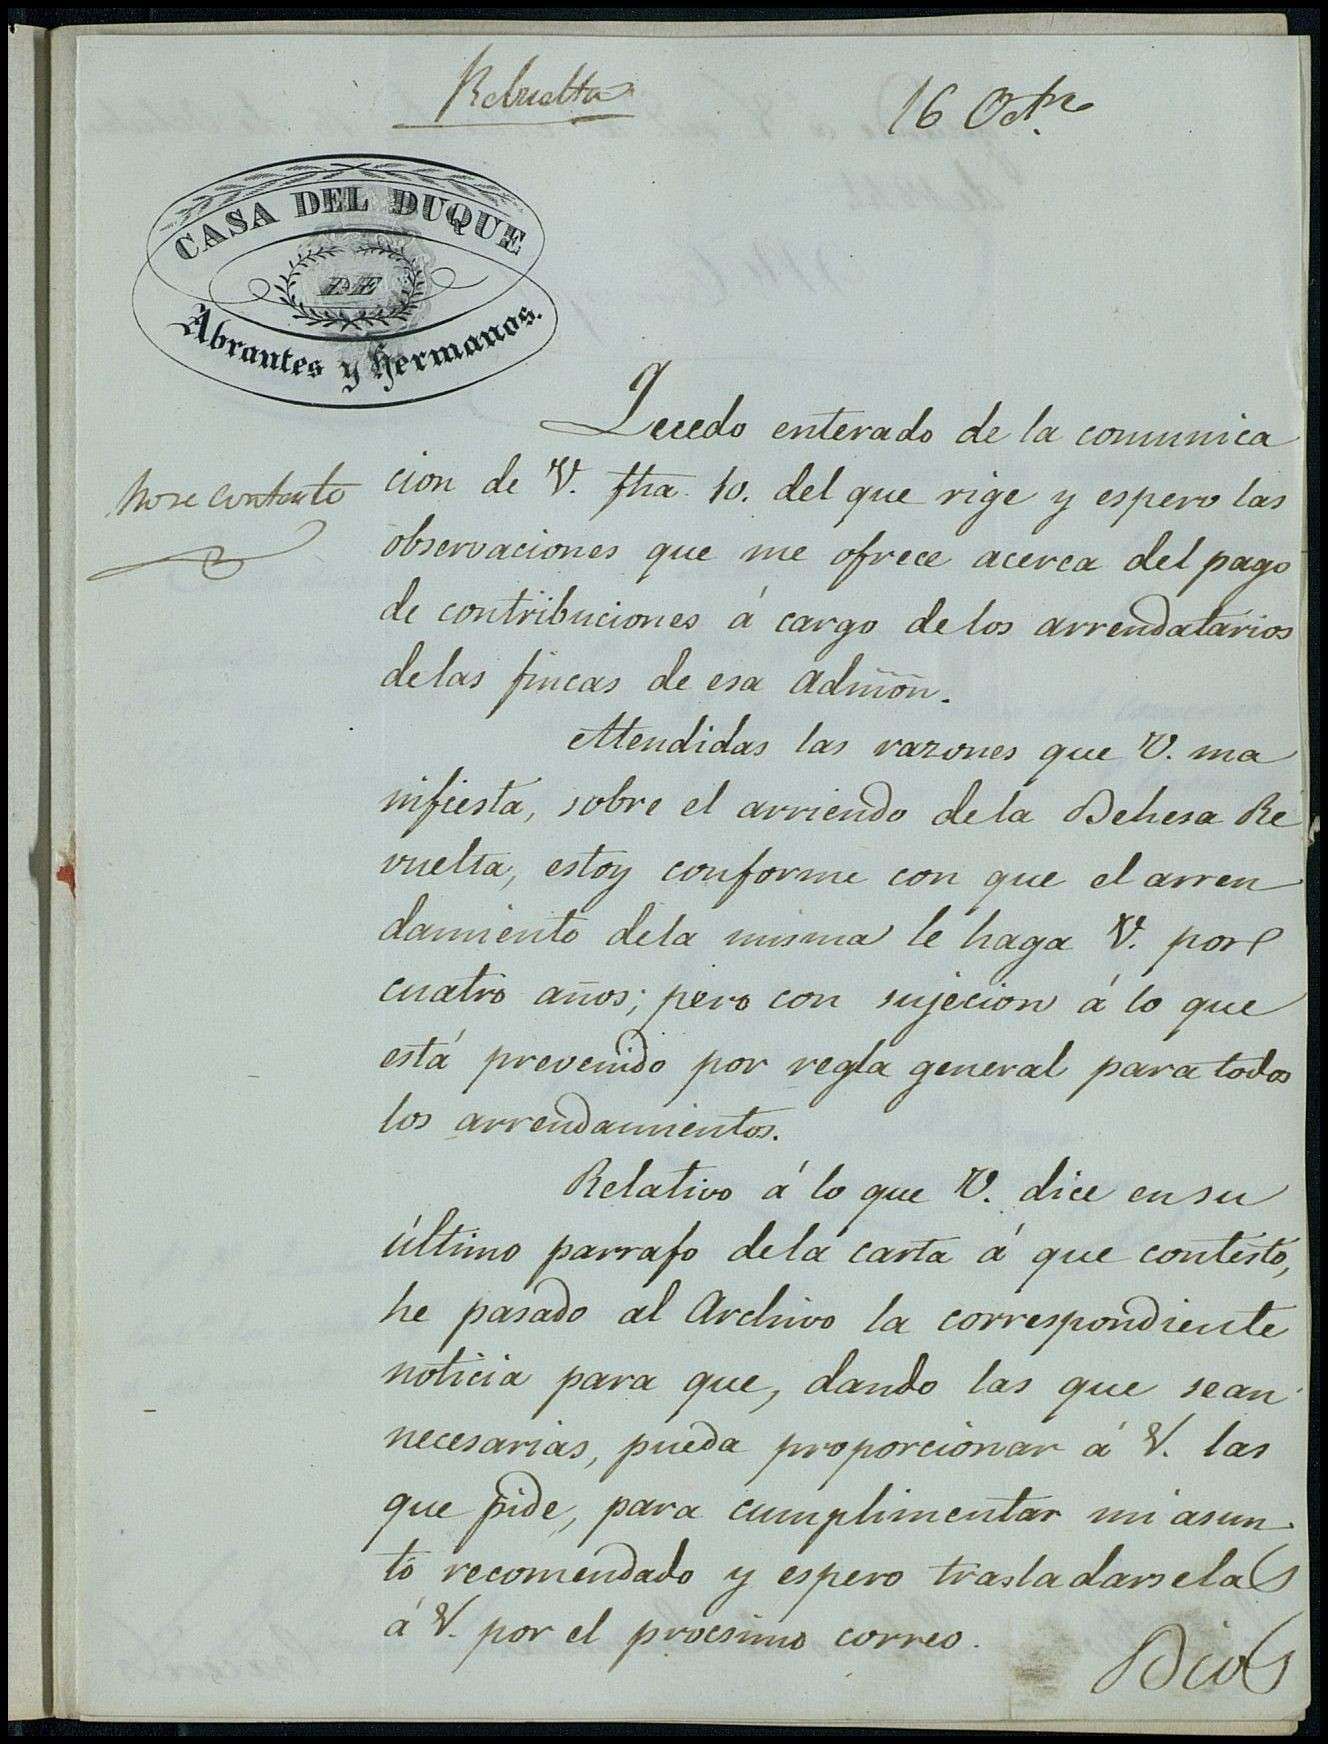 Rebuelta
16 Octe
CASA DEL DUQUE
DE
Abrantes y Hermanos.
Quedo enterado de la comunica
cion de V. fha. 10. del que rige y espero las
no se contesto
observaciones que me ofrece acerca del pago
de contribuciones á cargo de los arrendatarios
de las fincas de esa Admon.
Atendidas las razones que V. ma
nifiesta, sobre el arriendo de la Dehesa Re
vuelta, estoy conforme con que el arren
damiento de la misma le haga V. por
cuatro años; pero con sujecion á lo que
está prevenido por regla general para todos
los arrendamientos.
Relativo á lo que V. dice en su
último parrafo de la carta á que contesto,
he pasado al Archivo la correspondiente
noticia para que, dando las que sean
necesarias, pueda proporcionar á V. las
que pide, para cumplimentar mi asun
to recomendado y espero trasladarselas
á V. por el procsimo correo.
Dios